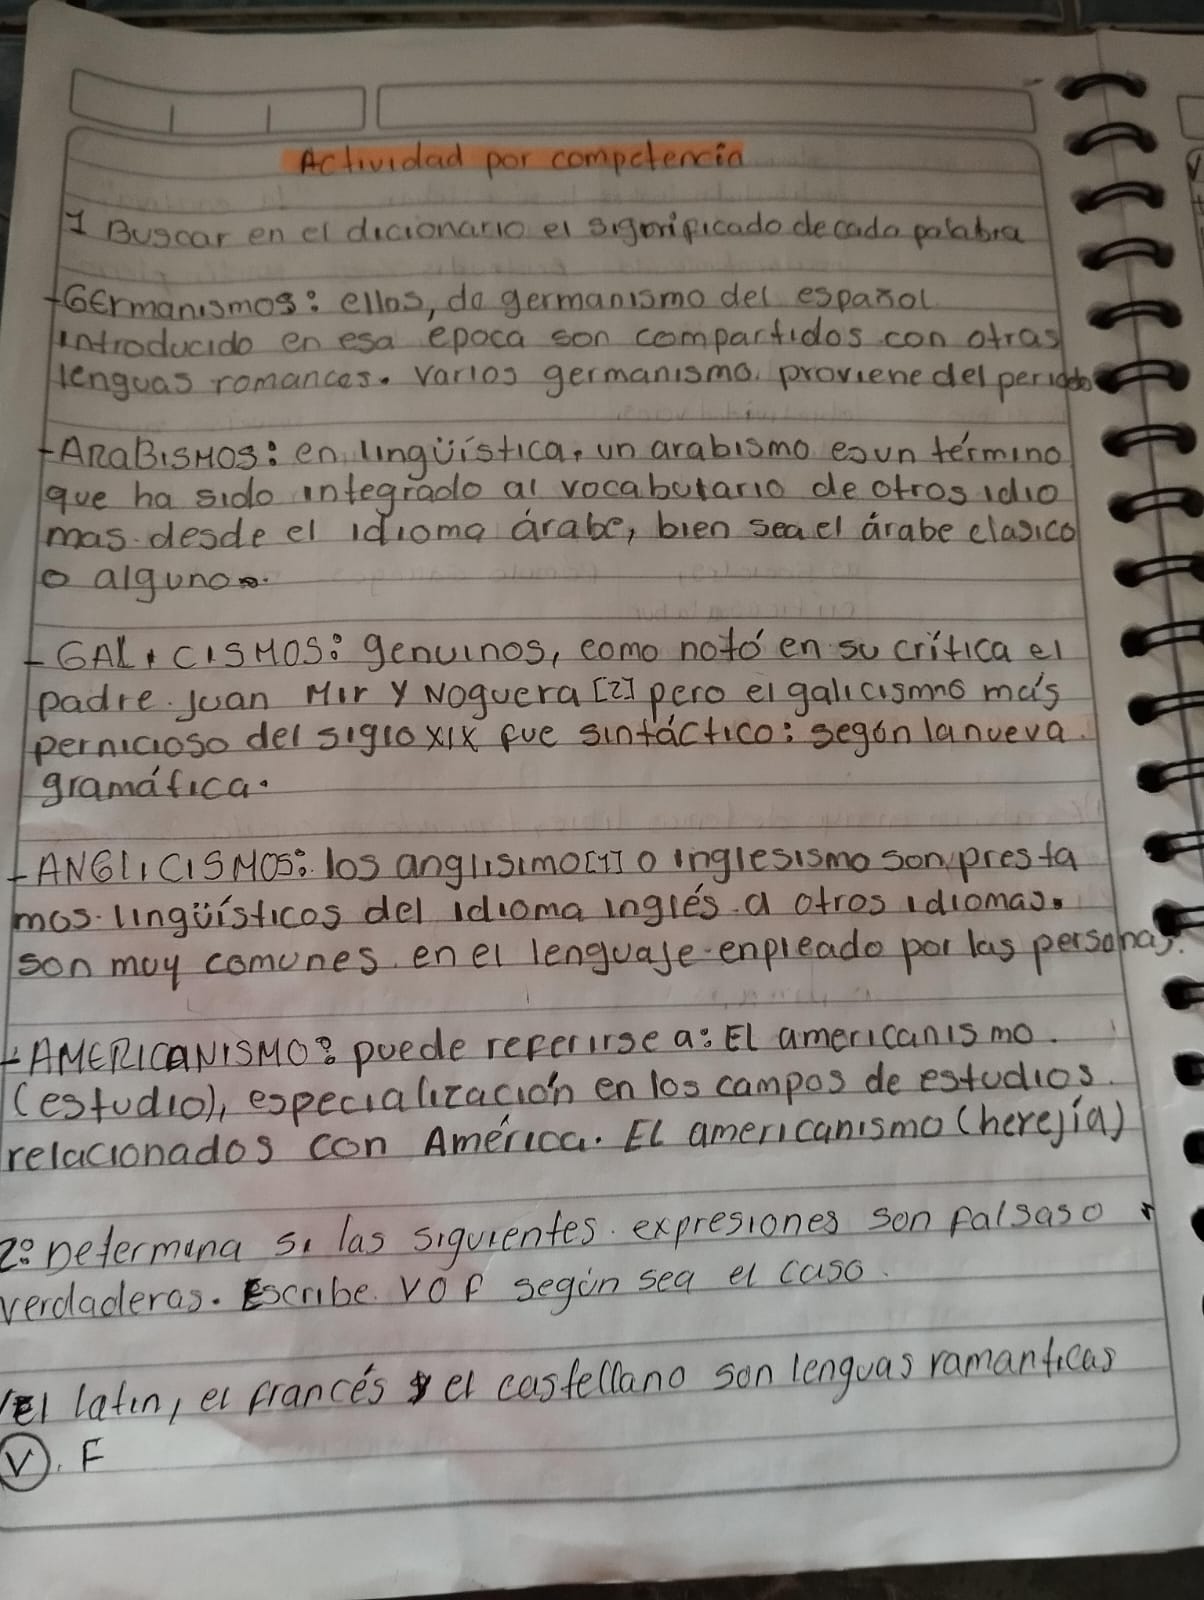 Actividad por competencia
1 Buscar en el dicionario el significado de cada palabra
-GErmanismos: ellos, do germanismo del español
introducido en esa epoca son compartidos con otras
lenguas romances. Varios germanismo. proviene del periodo
-ARaBisMOS: en lingüística, un arabismo es un término
que ha sido integrado al vocabulario de otros idio
mas. desde el idioma árabe, bien sea el árabe clasico
o alguno.
-GALiCISMOS: genuinos, como notó en su crítica el
padre. Juan Mir y Noguera [2] pero el galicismo más
pernicioso del siglo XIX fue sintáctico: según la nueva
gramática.
-ANGLiCISMOS: los anglisimo[1] o inglesismo son presta
mos lingüísticos del idioma inglés. a otros idiomas.
son muy comunes. en el lenguaje enpleado por las personas.
-AMERICANISMO: puede referirse a: El americanismo.
(estudio), especialización en los campos de estudios.
relacionados con América. El americanismo (herejía)
2: Determina si las siguientes. expresiones son falsas o
verdaderas. Escribe. V o F según sea el caso.
El latin, el francés y el castellano son lenguas ramanticas
V. F